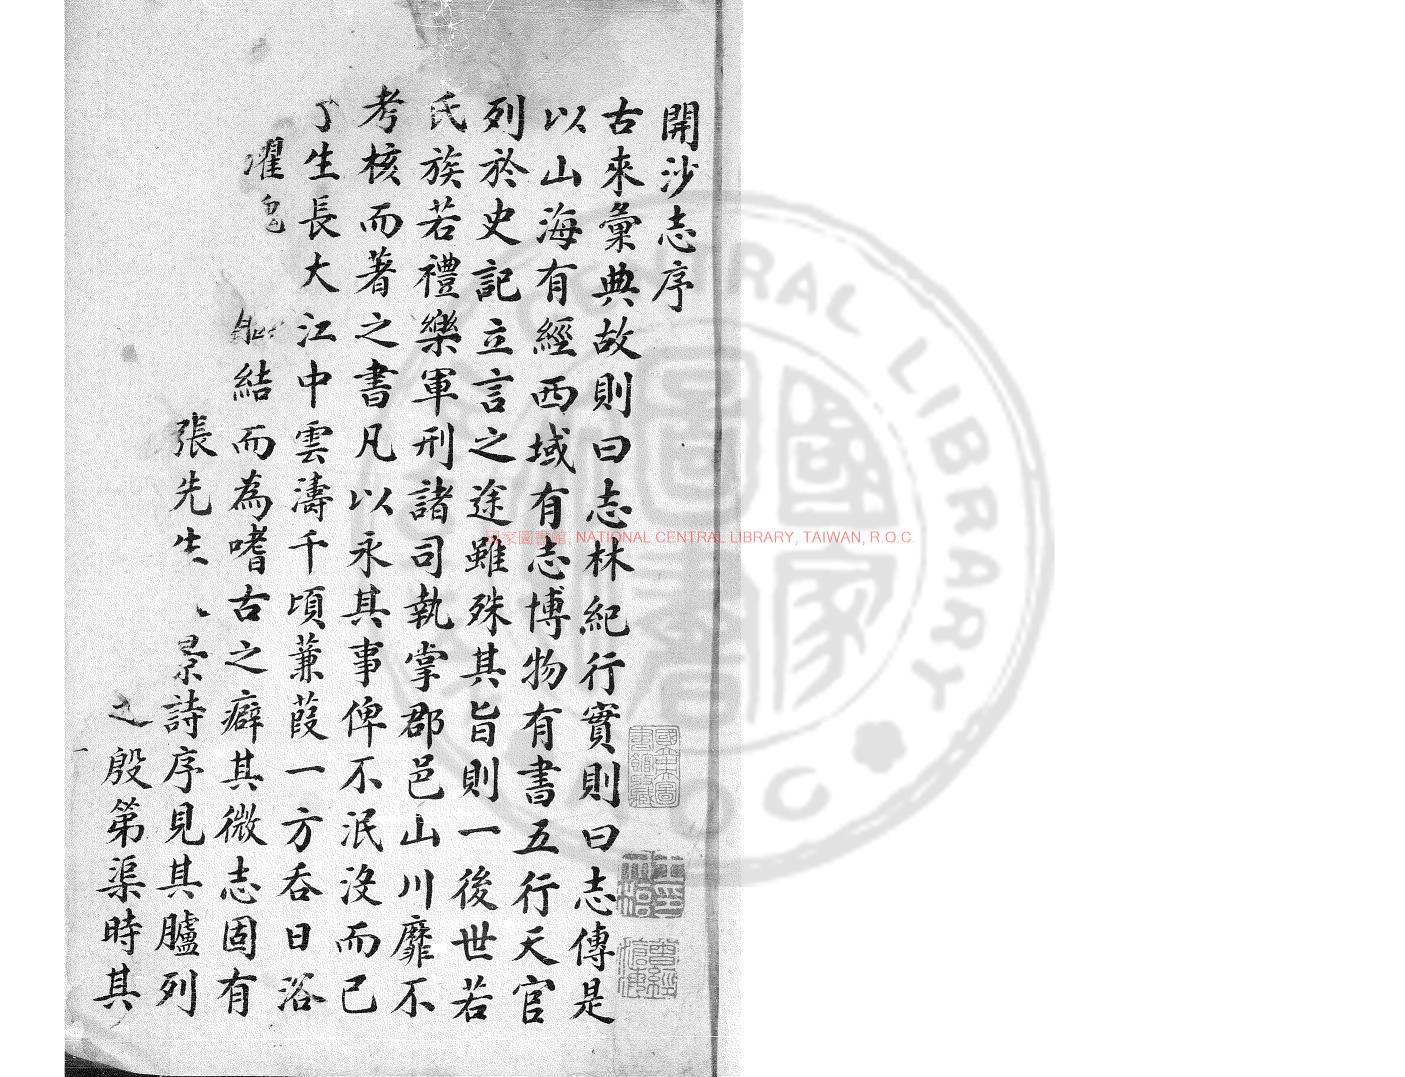 開沙志序
古來彙典故則曰志林紀行實則曰志傳是
以山海有經西域有志博物有書五行天官
列於史記立言之途雖殊其旨則一後世若
氏族若禮樂軍刑諸司執掌郡邑山川靡不
考核而著之書凡以永其事俾不泯沒而已
生長大江中雲濤千頃蒹葭一方吞日浴
濯
結而為嗜古之癖其微志固有
張先生
景詩序見其臚列
之殷第渠時其
一
國家圖書館藏
國家圖書館, NATIONAL CENTRAL LIBRARY, TAIWAN, R.O.C.
CENTRAL LIBRARY